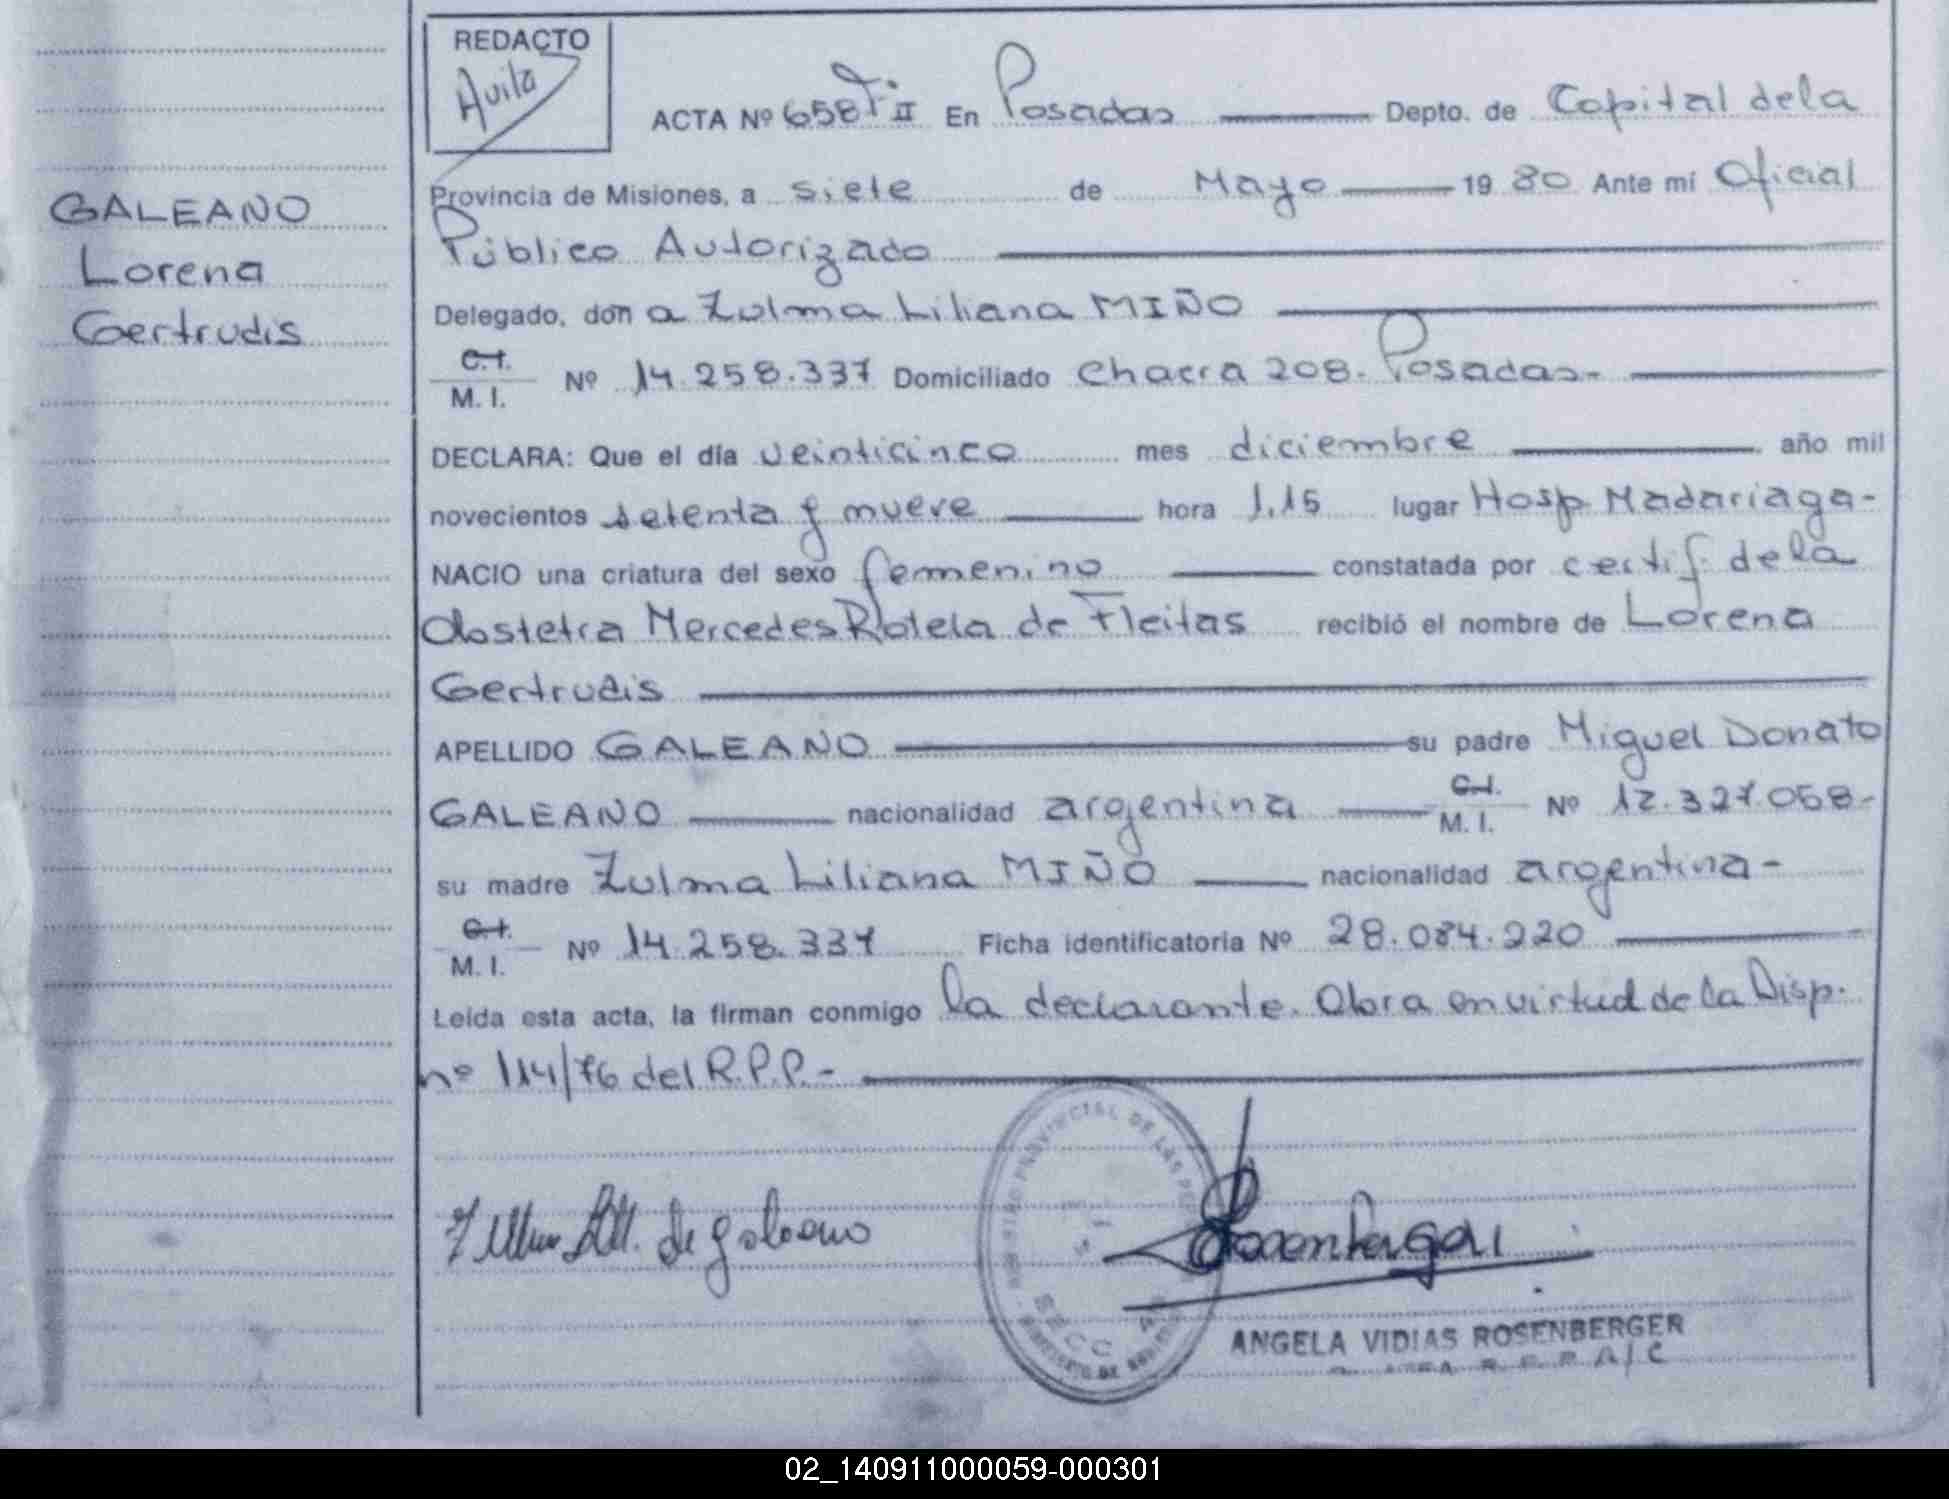 REDACTO
Avila
ACTA Nº 658 Tº II En Posadas Depto. de Capital de la
Provincia de Misiones, a siete de Mayo 19 80 Ante mí Oficial
Público Autorizado
Delegado, don a Zulma Liliana MIÑO
C.I.
M. I. Nº 14.258.337 Domiciliado Chacra 208. Posadas.-
DECLARA: Que el día veinticinco mes diciembre año mil
novecientos setenta y nueve hora 1.15 lugar Hosp Madariaga-
NACIO una criatura del sexo femenino constatada por certif. de la
obstetra Mercedes Rotela de Fleitas recibió el nombre de Lorena
Gertrudis
APELLIDO GALEANO su padre Miguel Donato
GALEANO nacionalidad argentina C.I.
M. I. Nº 12.327.058-
su madre Zulma Liliana MIÑO nacionalidad argentina-
C.I.
M. I. Nº 14.258.337 Ficha identificatoria Nº 28.084.220
Leída esta acta, la firman conmigo la declarante. Obra en virtud de la Disp.
nº 114/76 del R.P.P.-
GALEANO
Lorena
Gertrudis
de galeano
PROVINCIAL DE LAS
SECC
Rosenberger
ANGELA VIDIAS ROSENBERGER
A/C
02_140911000059-000301